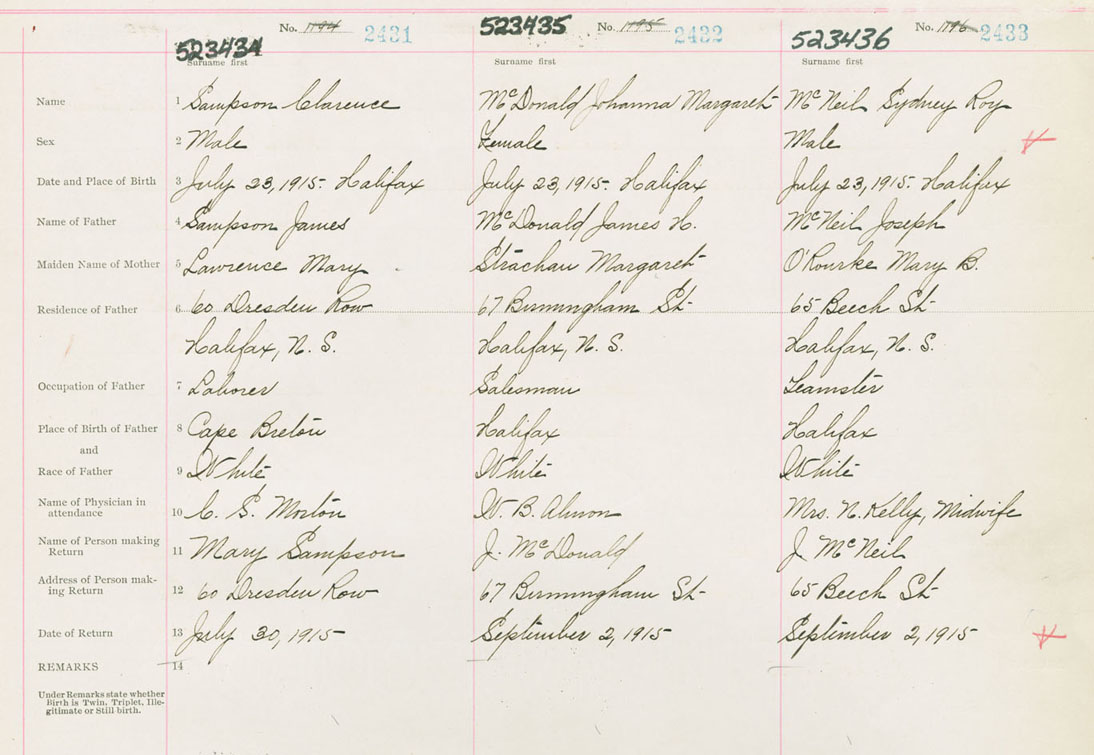 No. 1794 2431 No. 1795 2432 No. 1796 2433
523434 523435 523436
Surname first Surname first Surname first
Name 1 Sampson Clarence McDonald Johanna Margaret McNeil Sydney Roy
Sex 2 Male Female Male
Date and Place of Birth 3 July 23, 1915. Halifax July 23, 1915. Halifax July 23, 1915. Halifax
Name of Father 4 Sampson James McDonald James H. McNeil Joseph
Maiden Name of Mother 5 Lawrence Mary Strachan Margaret O'Rourke Mary B.
Residence of Father 6 60 Dresden Row 67 Birmingham St 65 Beech St
Halifax, N. S. Halifax, N. S. Halifax, N. S.
Occupation of Father 7 Laborer Salesman Teamster
Place of Birth of Father 8 Cape Breton Halifax Halifax
and
Race of Father 9 White White White
Name of Physician in
attendance 10 C. S. Morton W. B. Almon Mrs. N. Kelly, Midwife
Name of Person making
Return 11 Mary Sampson J. McDonald J. McNeil
Address of Person mak-
ing Return 12 60 Dresden Row 67 Birmingham St 65 Beech St
Date of Return 13 July 30, 1915 September 2, 1915 September 2, 1915
REMARKS 14
Under Remarks state whether
Birth is Twin, Triplet, Ille-
gitimate or Still birth.